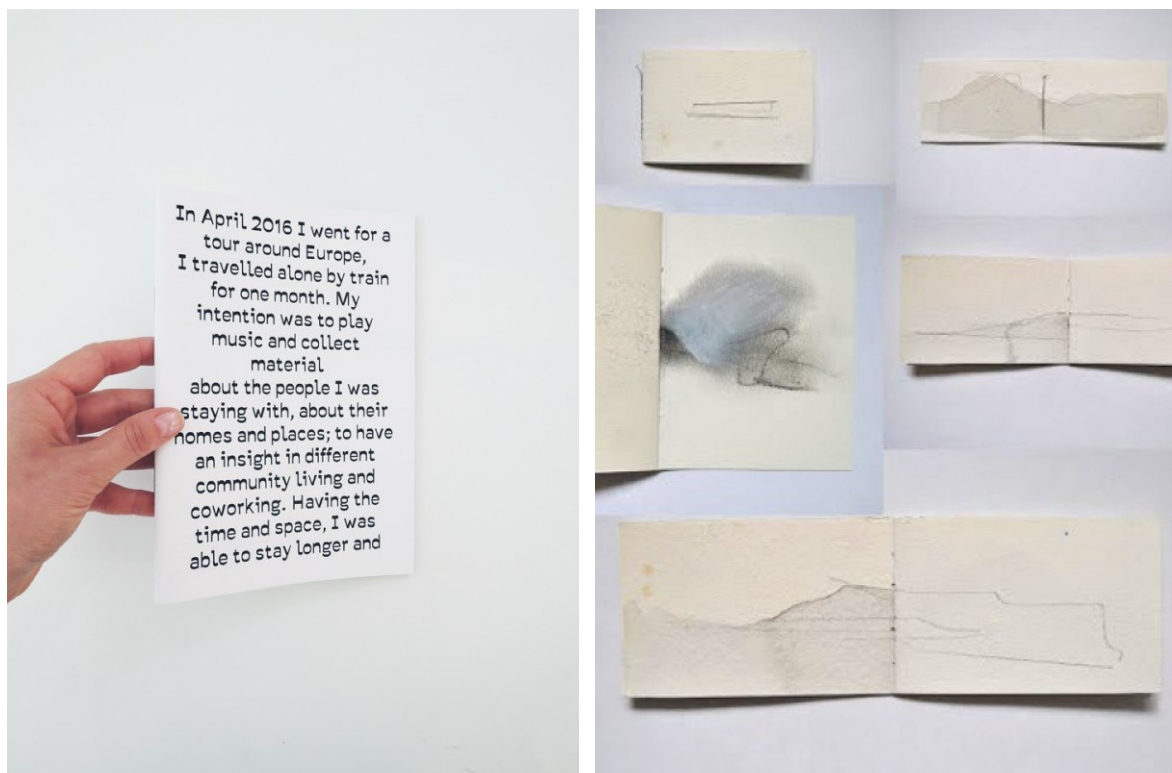 In April 2016 I went for a
tour around Europe,
I travelled alone by train
for one month. My
intention was to play
music and collect
material
about the people I was
staying with, about their
homes and places; to have
an insight in different
community living and
coworking. Having the
time and space, I was
able to stay longer and